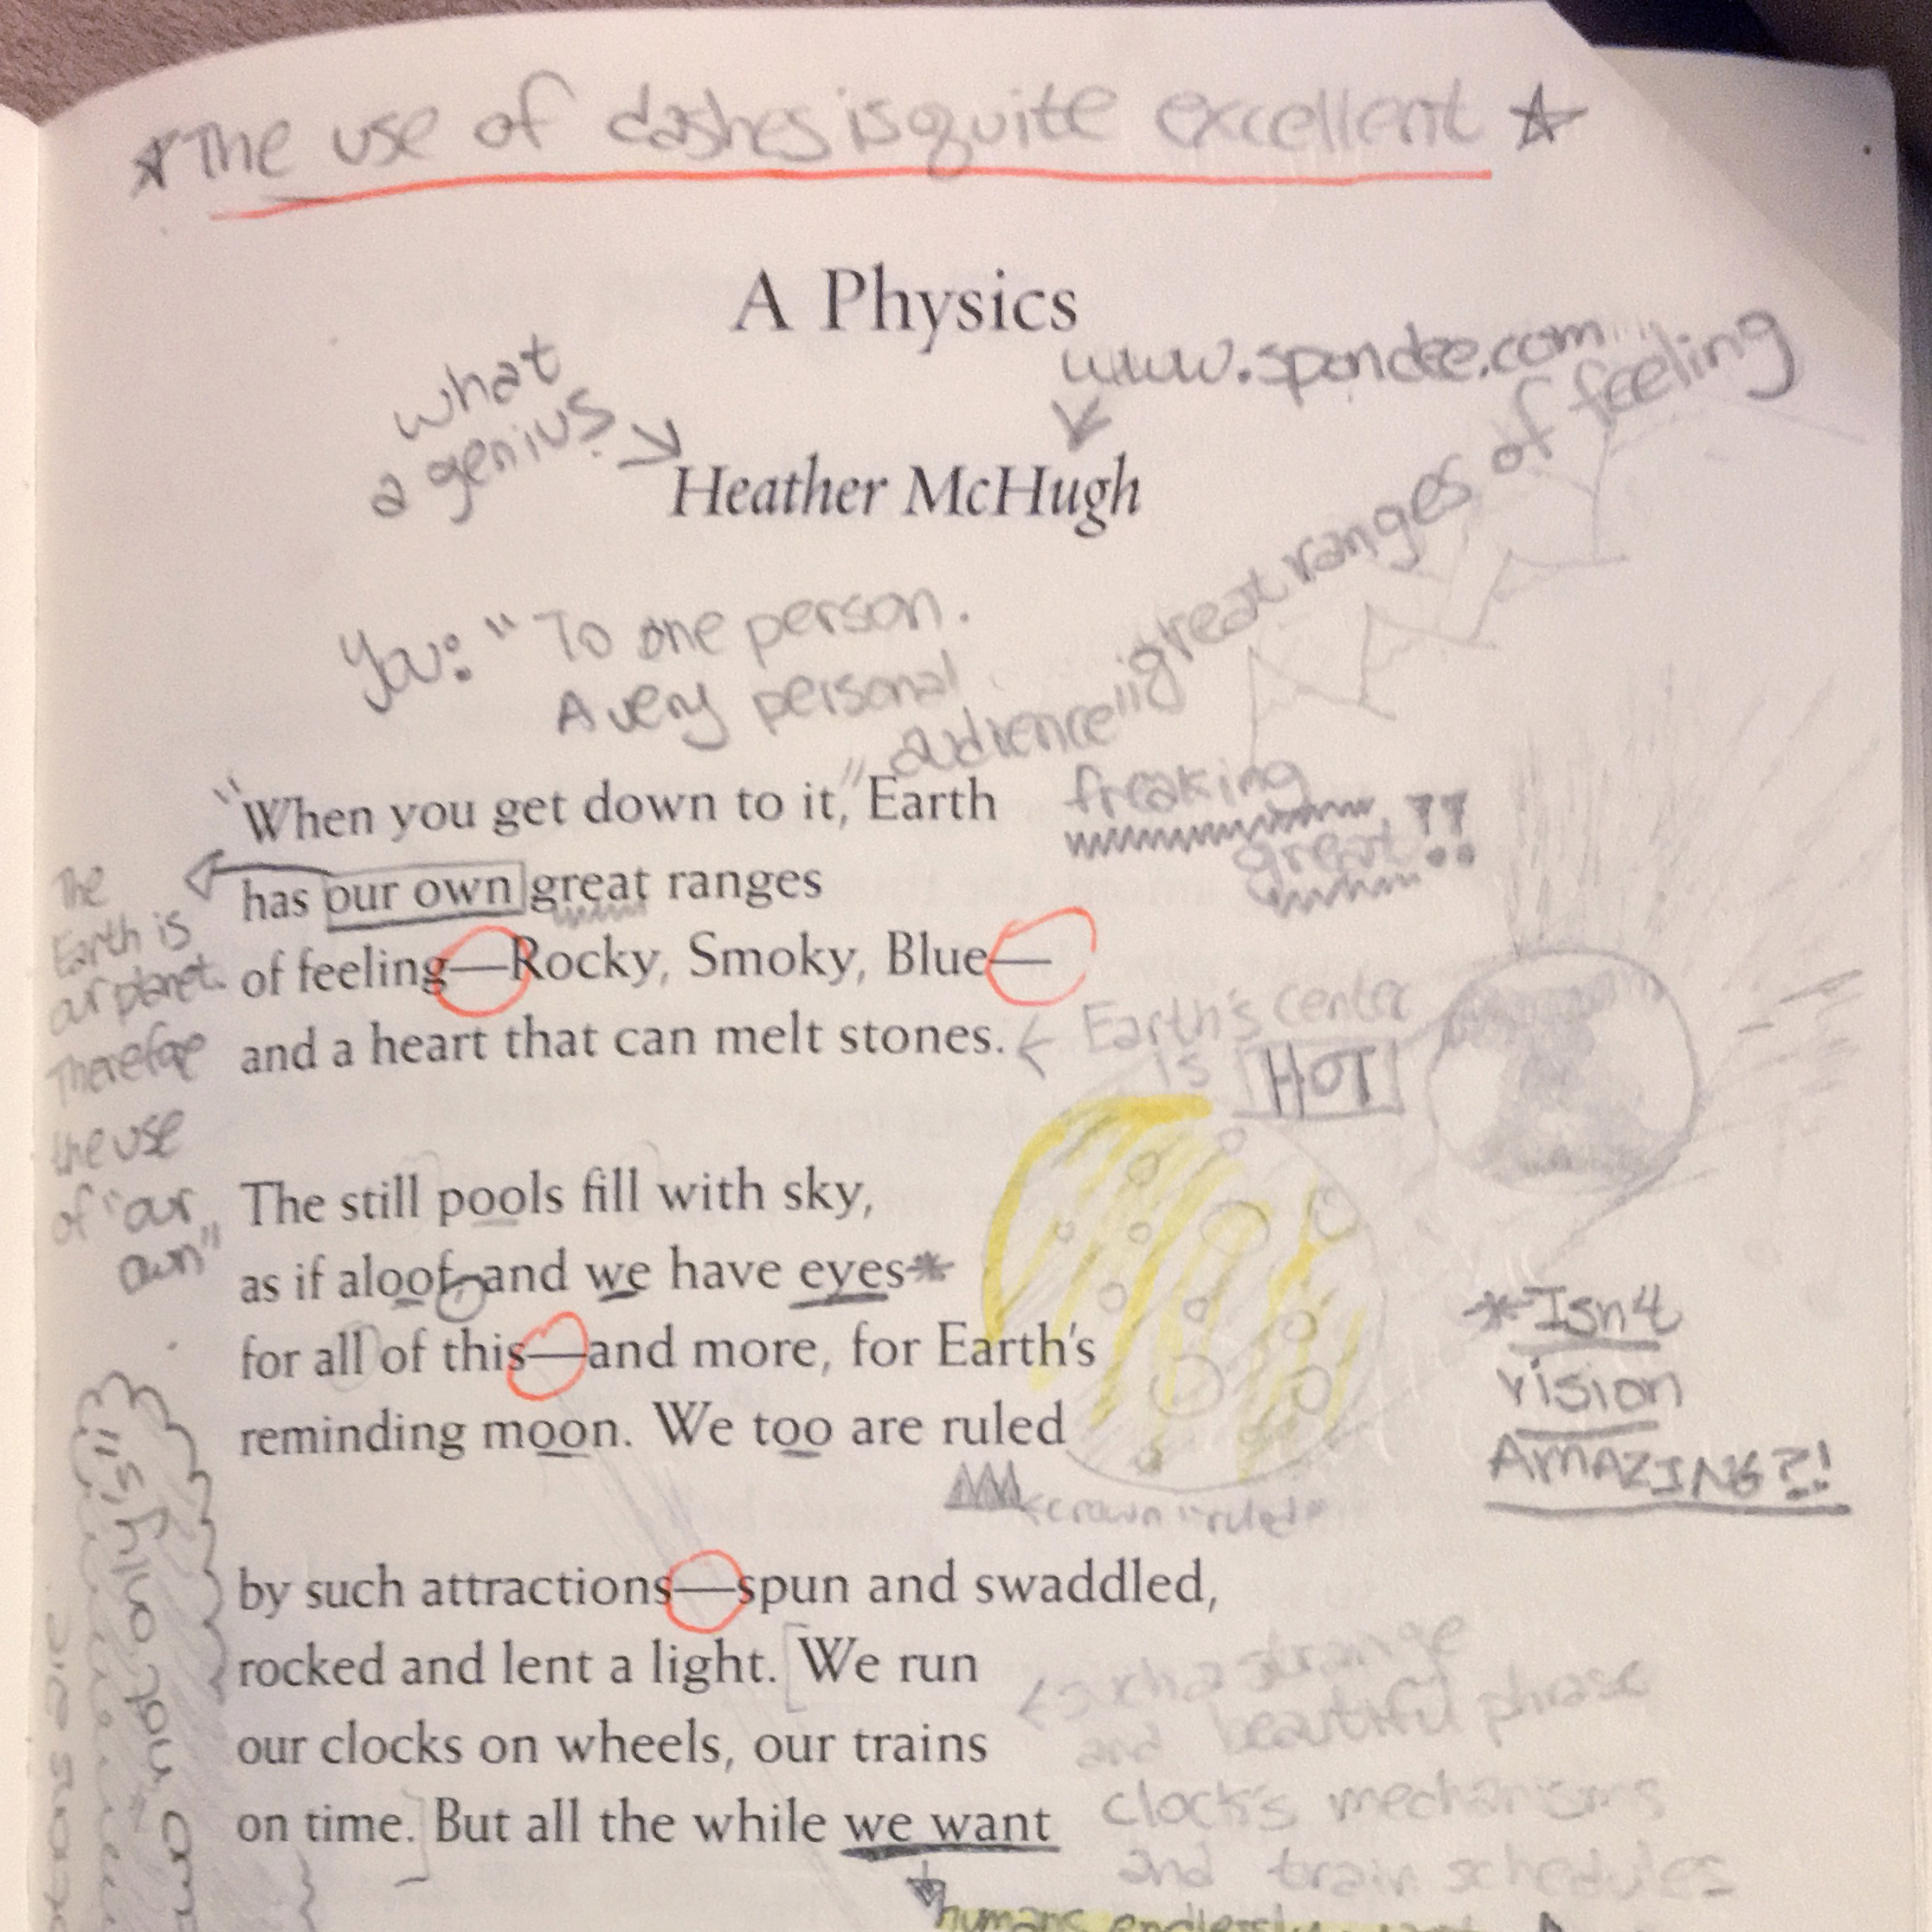 The use of dashes is quite excellent
A Physics
what
a genius
www.spondee.com
Heather McHugh
You: "To one person.
A very personal
audience"
"great ranges of feeling
"When you get down to it," Earth
freaking
great
has our own great ranges
of feeling—Rocky, Smoky, Blue—
and a heart that can melt stones.
Earth's center
is HOT
The
Earth is
our planet.
Therefore
the use
of "our
own"
The still pools fill with sky,
as if aloof, and we have eyes*
for all of this—and more, for Earth's
reminding moon. We too are ruled
*Isn't
vision
AMAZING?!
crown "ruled"
by such attractions—spun and swaddled,
rocked and lent a light. [We run
our clocks on wheels, our trains
on time.] But all the while we want
such a strange
and beautiful phrase
clock's mechanisms
and train schedules
humans endlessly